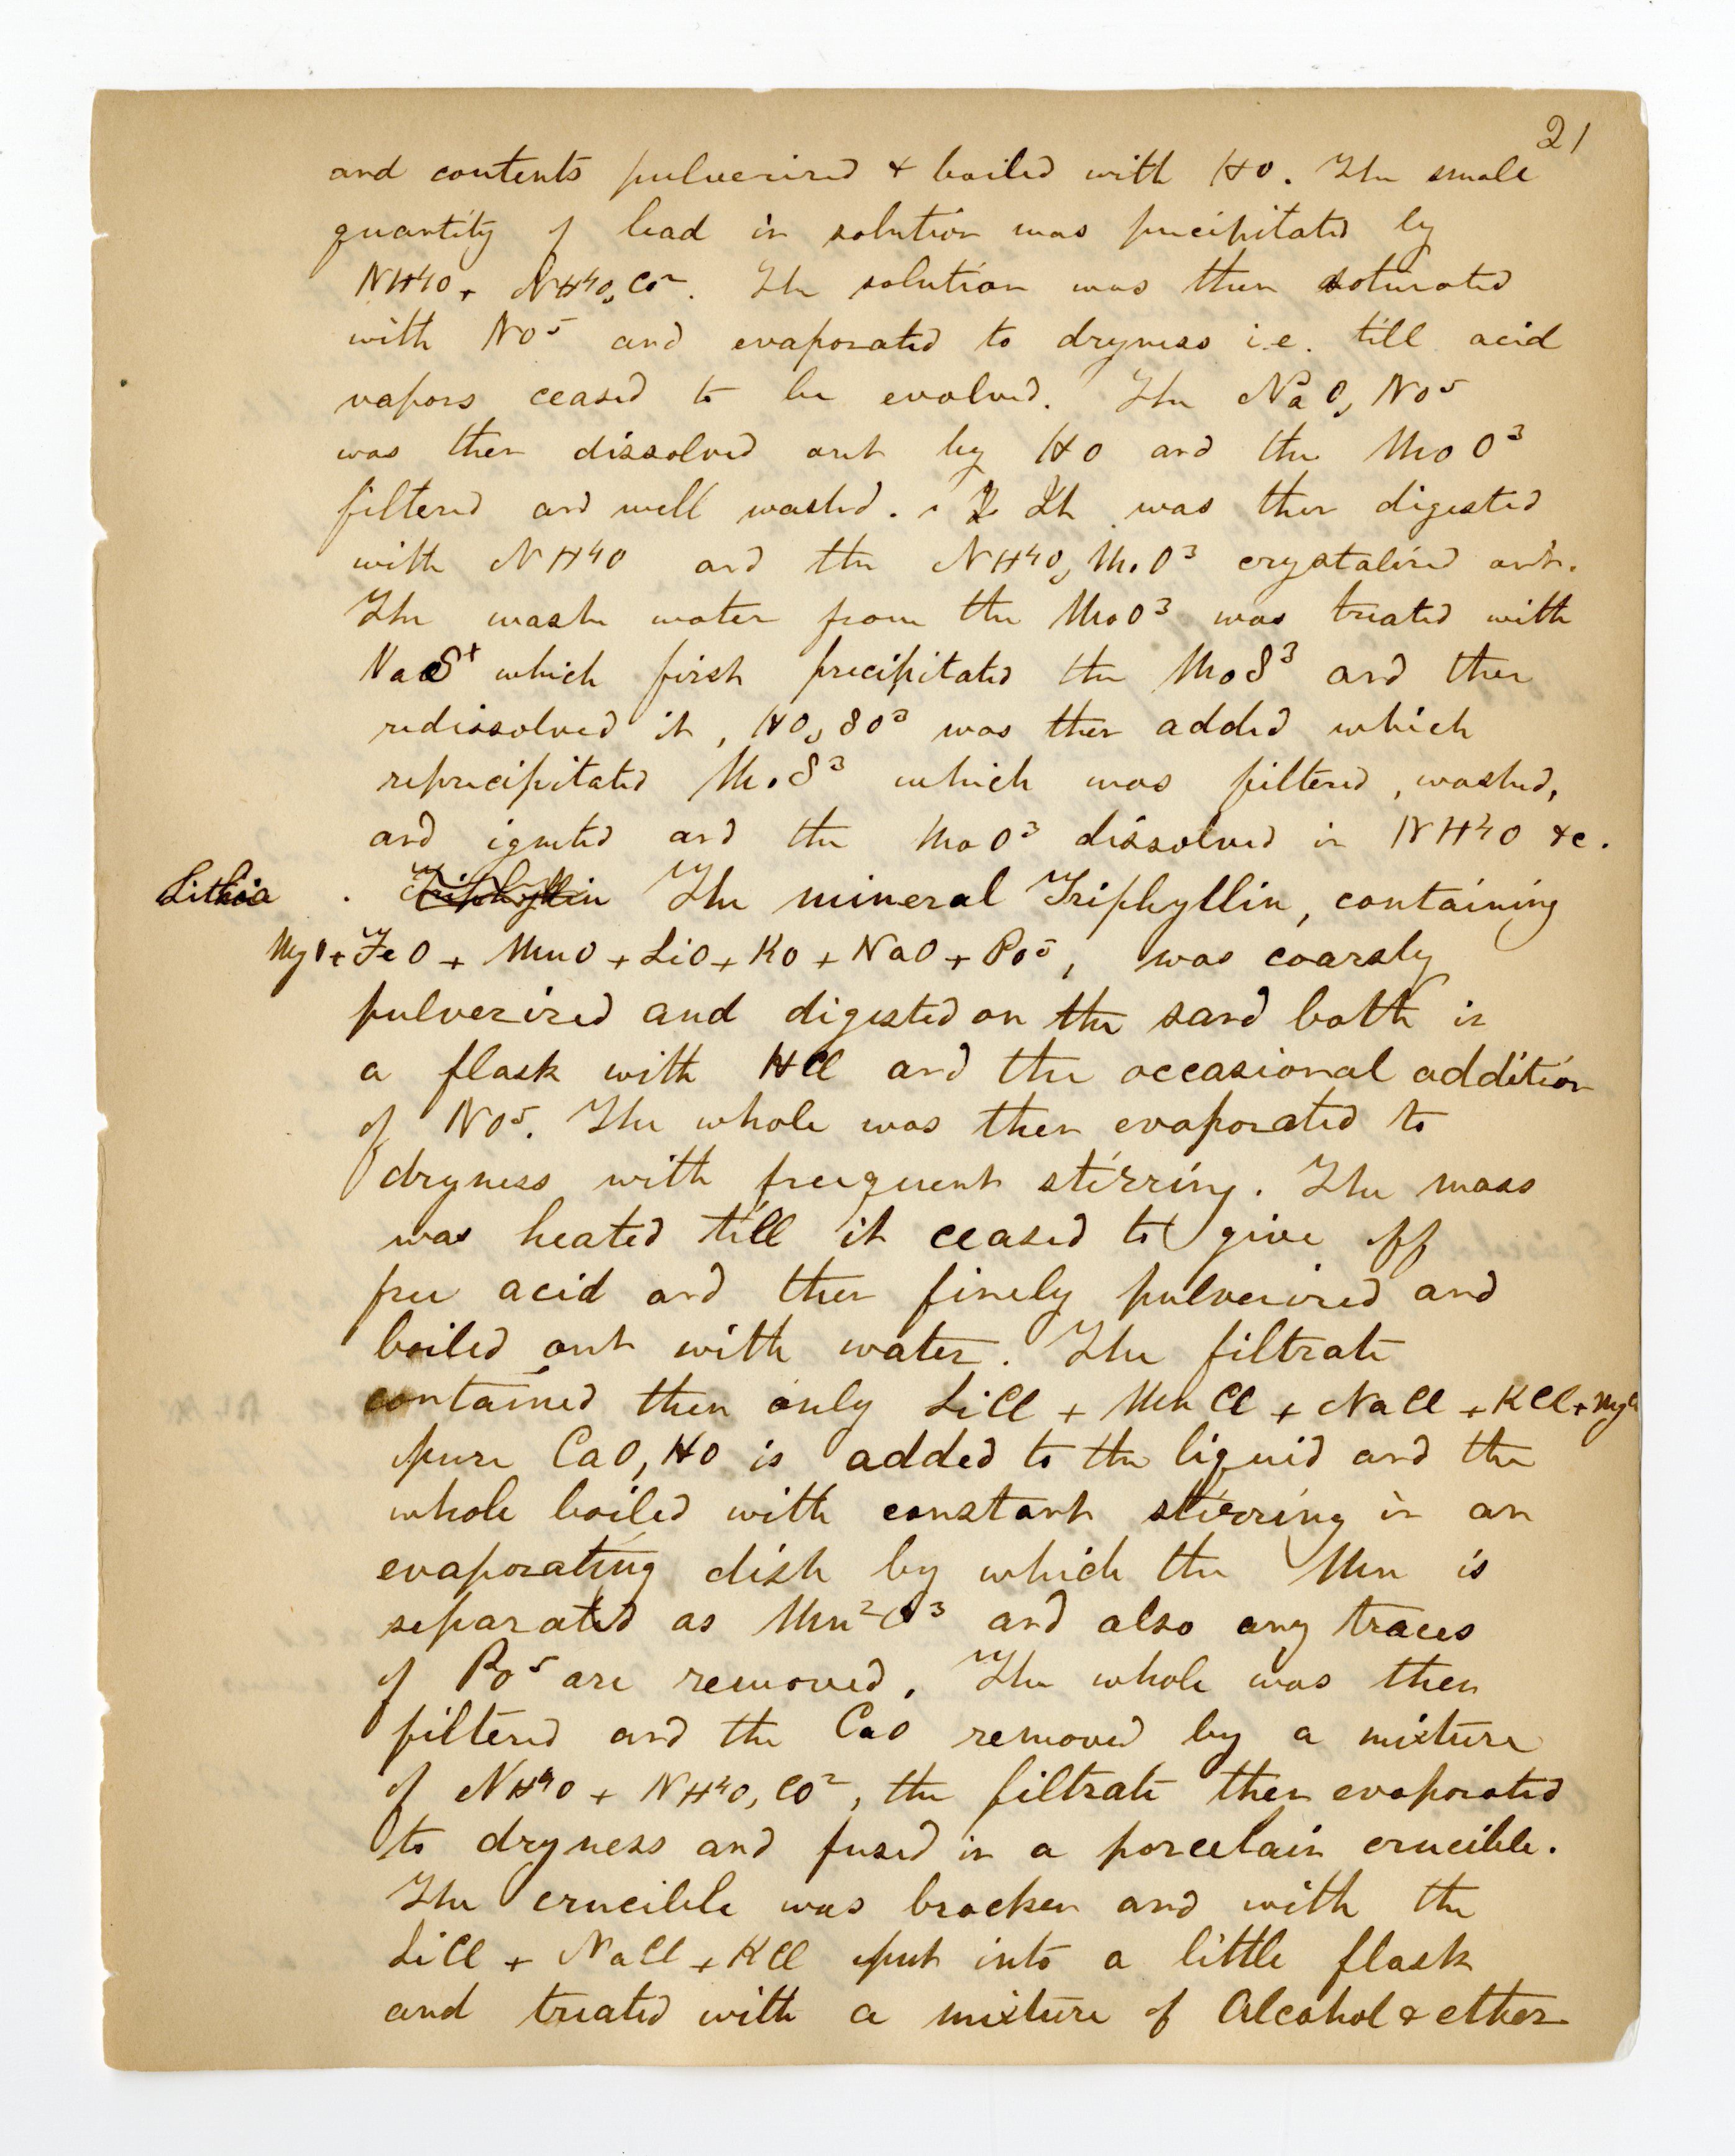 21
and contents pulverized & boiled with HO. The small
quantity of lead in solution was precipitated by
NH⁴O + NH⁴O, CO². The solution was then saturated
with NO⁵ and evaporated to dryness i.e. till acid
vapors ceased to be evolved. The NaO, NO⁵
was then dissolved out by HO and the MoO³
filtered and well washed. It was then digested
with NH⁴O and the NH⁴O, MoO³ crystalized out.
The wash water from the MoO³ was treated with
which first precipitated the MoS³ and then
redissolved it, HO, SO³ was then added which
reprecipitated MoS³ which was filtered, washed,
and ignited and the MoO³ dissolved in NH⁴O &c.
Lithia . Triphyllin The mineral Triphyllin, containing
MgO + FeO + MnO + LiO + KO + NaO + PO⁵, was coarsly
pulverized and digested on the sand bath in
a flask with HCl and the occasional addition
of NO⁵. The whole was then evaporated to
dryness with frequent stirring. The mass
was heated till it ceased to give off
free acid and then finely pulverized and
boiled out with water. The filtrate
contained then only LiCl + MnCl + NaCl + KCl + MgCl
pure CaO, HO is added to the liquid and the
whole boiled with constant stirring in an
evaporating dish by which the Mn is
separated as Mn²O³ and also any traces
of PO⁵ are removed. The whole was then
filtered and the CaO removed by a mixture
of NH⁴O + NH⁴O, CO², the filtrate then evaporated
to dryness and fused in a porcelain crucible.
The crucible was brocken and with the
LiCl + NaCl + KCl put into a little flask
and treated with a mixture of Alcohol & ether